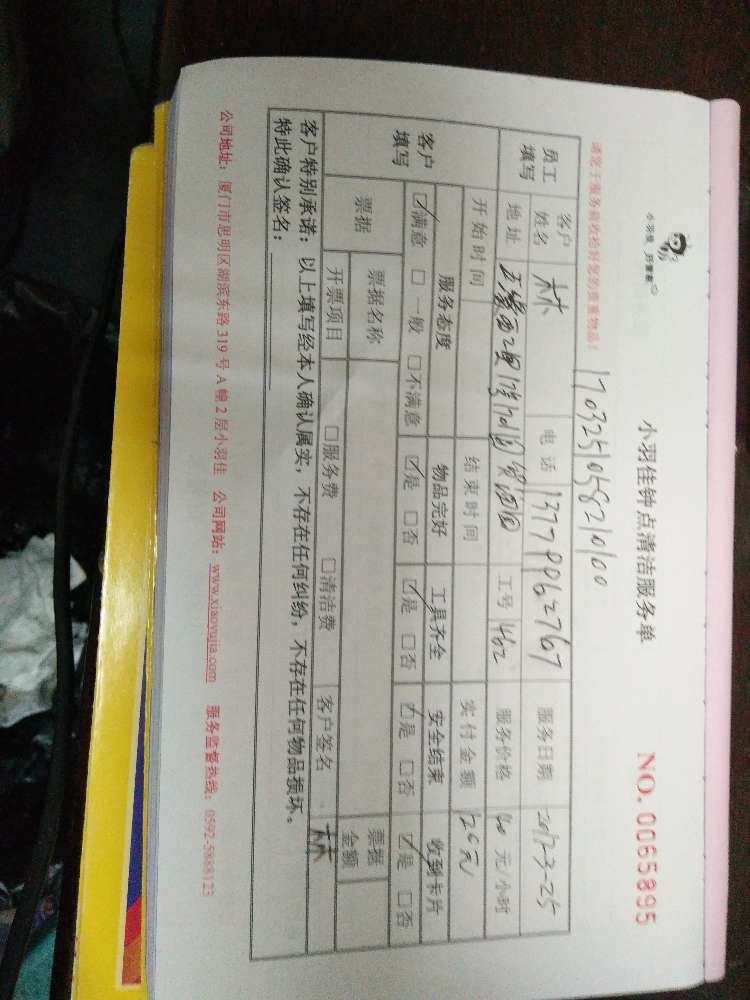 小羽佳 好管家
小羽佳钟点清洁服务单
NO. 0065895
1703251058210100
请您于服务前收拾好您的贵重物品!
员工填写 客户姓名 林 电话 13779062767 服务日期 2017-3-25
地址 工号 462 服务价格 40 元/小时
开始时间 结束时间 实付金额 120元
客户填写 服务态度 物品完好 工具齐全 安全结束 收到卡片
☑满意 □一般 □不满意 ☑是 □否 ☑是 □否 ☑是 □否 ☑是 □否
票据 票据名称 票据金额
开票项目 □服务费 □清洁费 客户签名 林
客户特别承诺:以上填写经本人确认属实,不存在任何纠纷,不存在任何物品损坏。
特此确认签名:
公司地址:厦门市思明区湖滨东路 319 号 A 幢 2 层小羽佳 公司网站:www.xiaoyujia.com 服务监督热线:0592-5888123